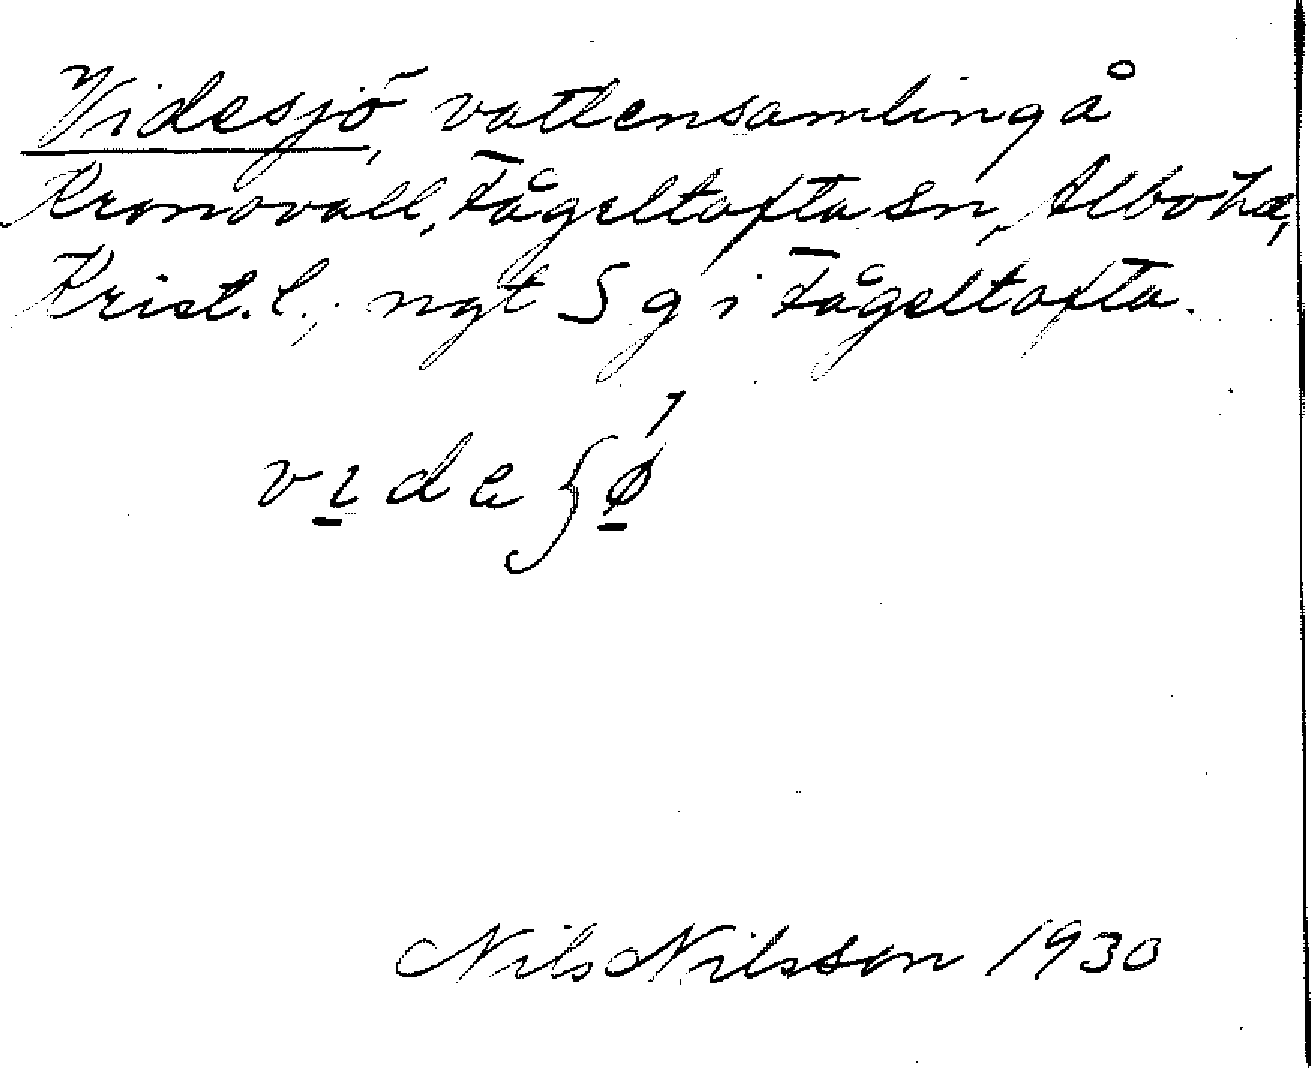 Videsjö, vattensamling å
Kronovall, Fågeltofta sn, Albo hd,
Krist. l.; ngt S g i Fågeltofta.
Nils Nilsson 1930